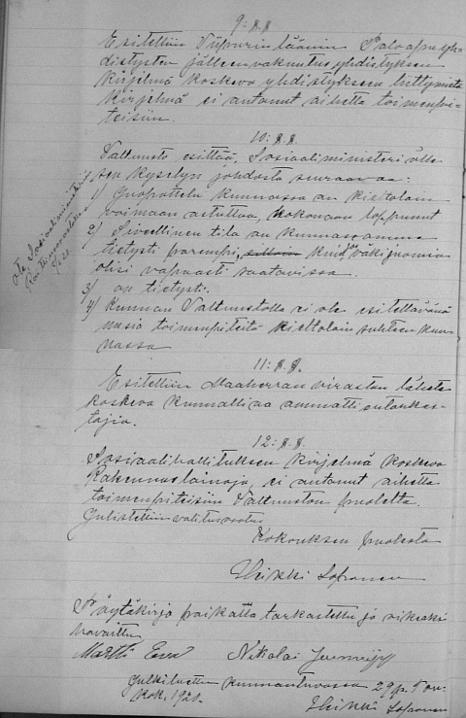 9: § §
Esitettiin Viipurin läänin Paloapuyh-
distysten jälleenvakuutusyhdistyksen
kirjelmä koskeva yhdistykseen liittymistä
Kirjelmä ei antanut aihetta toimenpi-
teisiin.
10: § §
Valtuusto esittää, Sosiaaliministeriölle
sen kyselyn johdosta seuraavaa:
1) Juopottelu kunnassa on kieltolain
voimaan astuttua, kokonaan loppunut
2) Siveellinen tila on kunnassamme
tietysti parempi, kuin väkijuomia
olisi vapaasti saatavissa.
3) on tietysti.
4) Kunnan Valtuustolla ei ole esitettävänä
uusia toimenpiteitä kieltolain suhteen kun-
nassa
Ote Sosiaaliministeriö
11: § §.
Esitettiin Maaherran viraston lähete
koskeva kunnallisaa ammattientarkas-
tajia.
12: § §
Sosiaalihallituksen kirjelmä koskeva
Rakennuslainoja, ei antanut aihetta
toimenpiteisiin Valtuuston puolelta
Julistettiin valitusosotus
Kokouksen puolesta
Heikki Loponen
Pöytäkirja paikalla tarkastettu ja oikeaksi
havaittu
Martti Nikolai
Julkiluettu kunnantuvassa 29 p. Tou-
kok. 1921.
Heikki Loponen